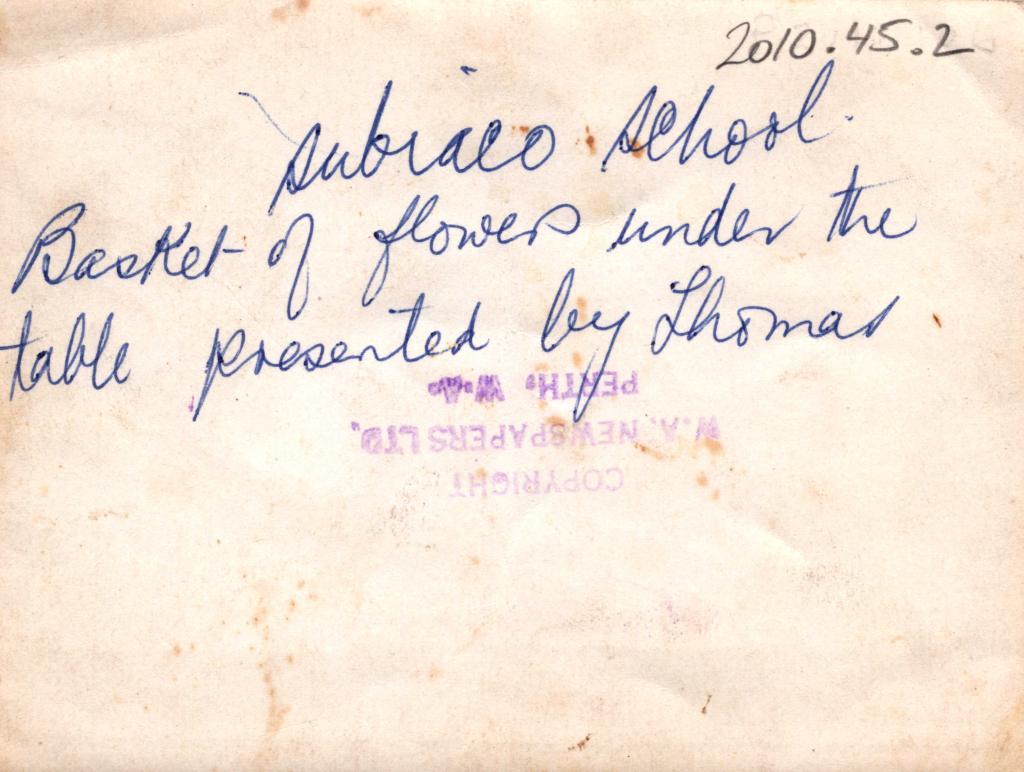 2010.45.2
Subiaco School.
Basket of flowers under the
table presented by Thomas
PERTH. W.A.
W.A. NEWSPAPERS LTD.
COPYRIGHT